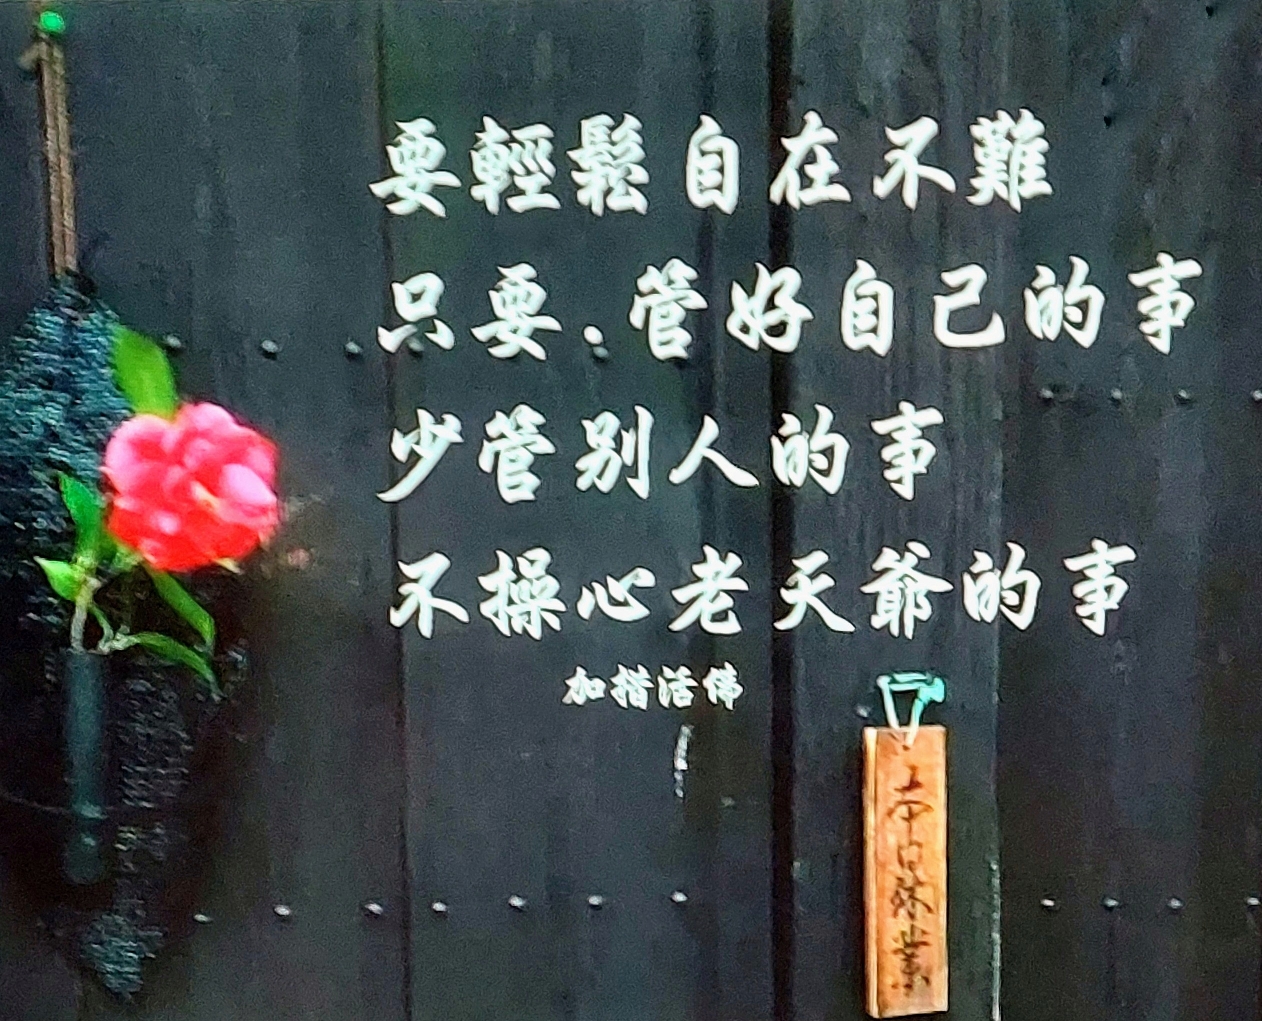 要輕鬆自在不難
只要．管好自己的事
少管別人的事
不操心老天爺的事
加措活佛